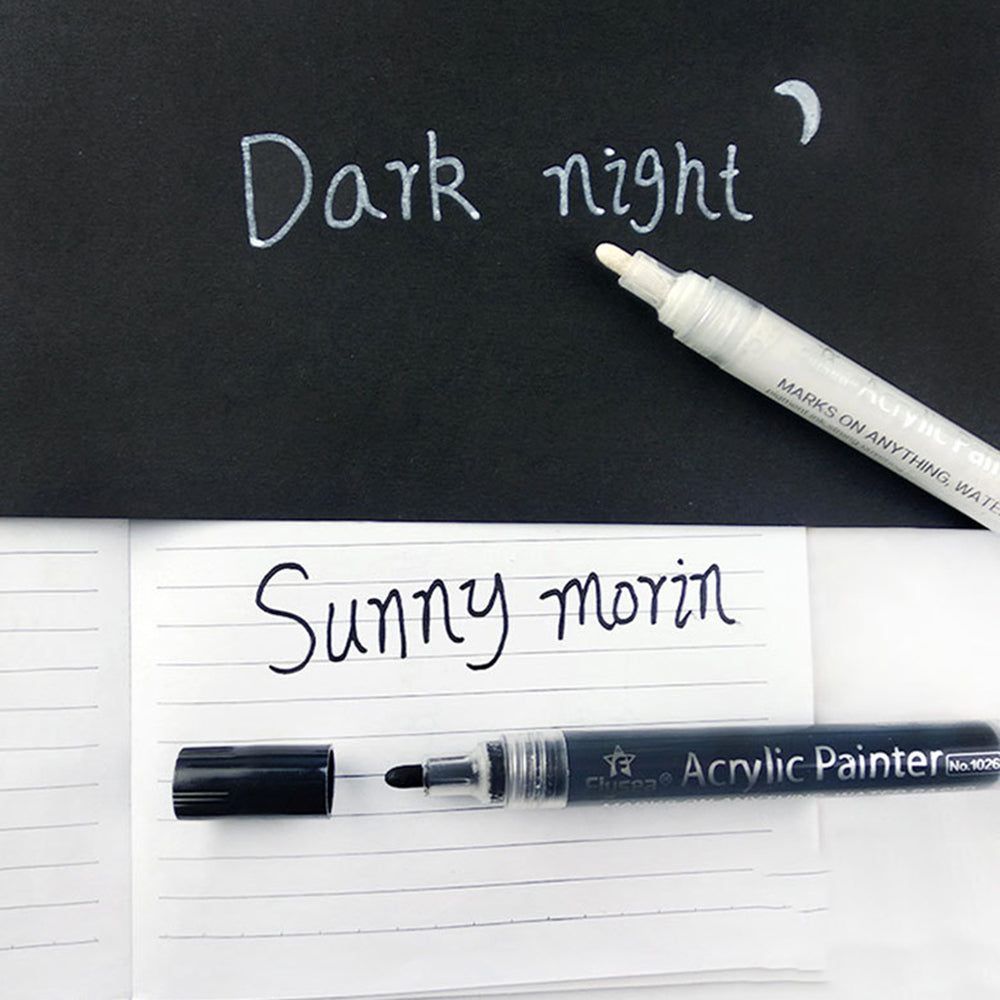 Dark night
Acrylic Pain
MARKS ON ANYTHING, WATE
Sunny morin
Flysea® Acrylic Painter No.1026